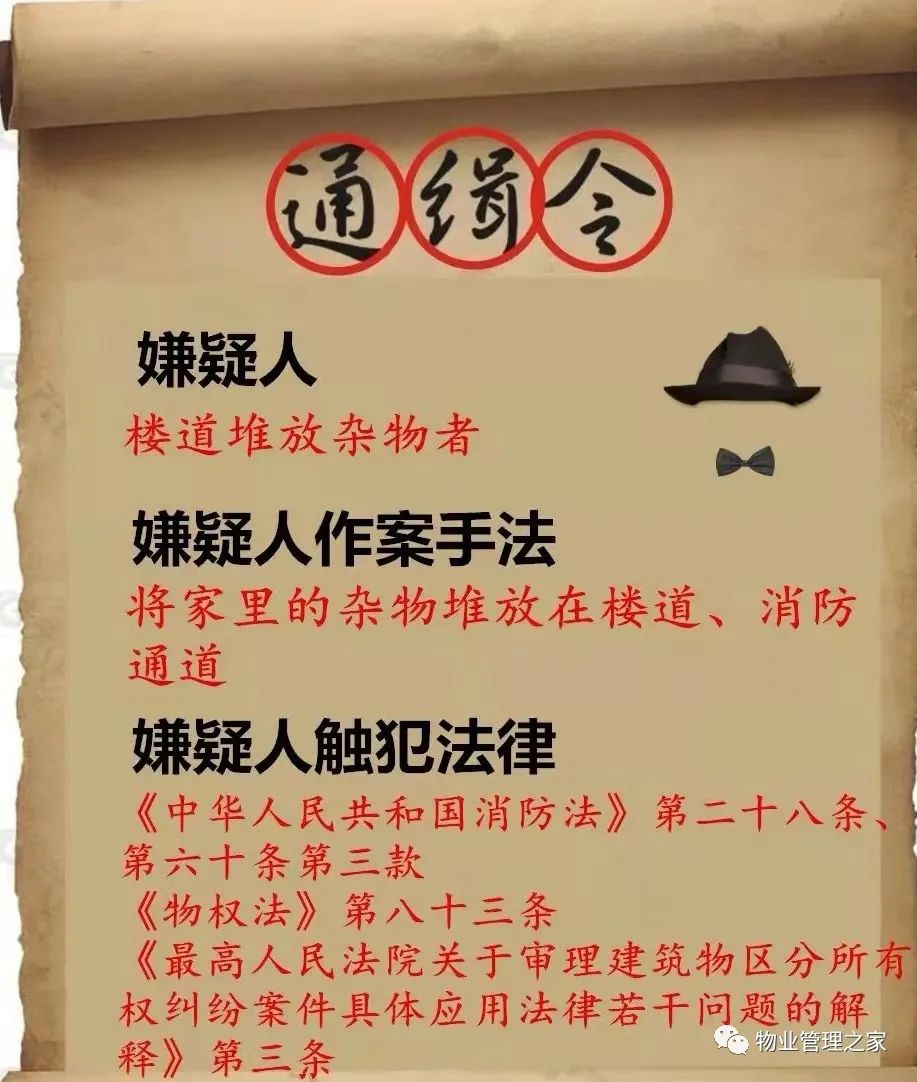 通缉令
嫌疑人
楼道堆放杂物者
嫌疑人作案手法
将家里的杂物堆放在楼道、消防
通道
嫌疑人触犯法律
《中华人民共和国消防法》第二十八条、
第六十条第三款
《物权法》第八十三条
《最高人民法院关于审理建筑物区分所有
权纠纷案件具体应用法律若干问题的解
释》第三条
物业管理之家